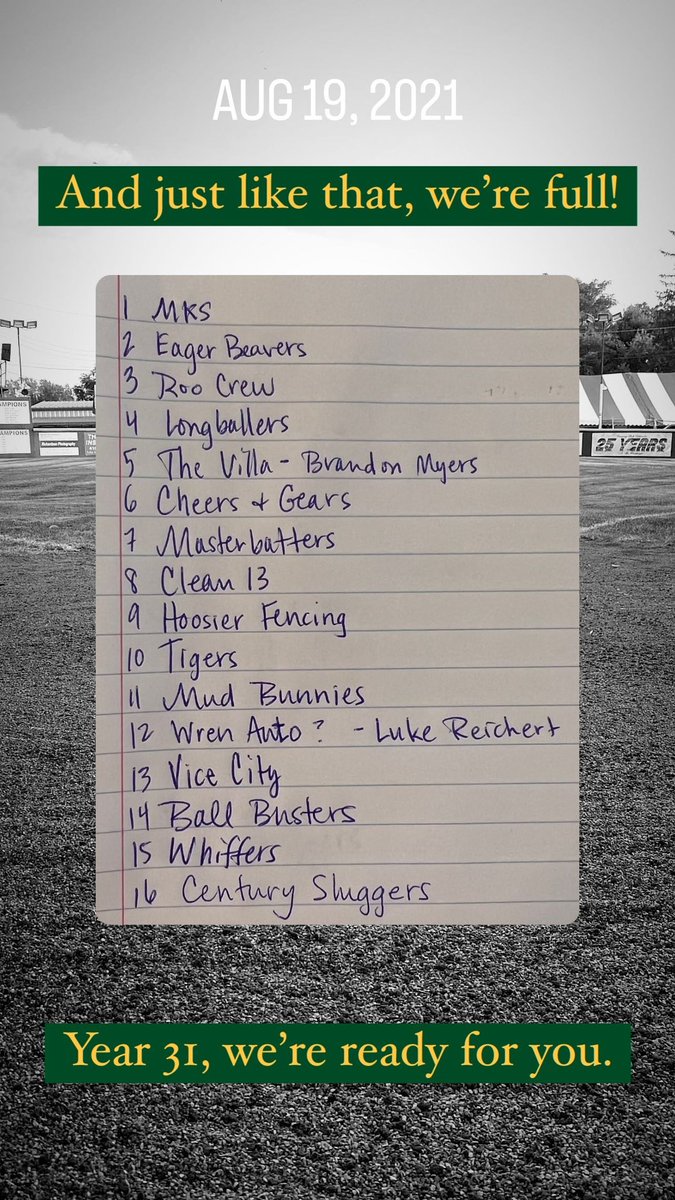 AUG 19, 2021
And just like that, we're full!
1 MKS
2 Eager Beavers
3 Roo Crew
4 Longballers
5 The Villa - Brandon Myers
6 Cheers + Gears
7 Masterbatters
8 Clean 13
9 Hoosier Fencing
10 Tigers
11 Mud Bunnies
12 Wren Auto? - Luke Reichert
13 Vice City
14 Ball Busters
15 Whiffers
16 Century Sluggers
CHAMPIONS
25 YEARS
Year 31, we're ready for you.